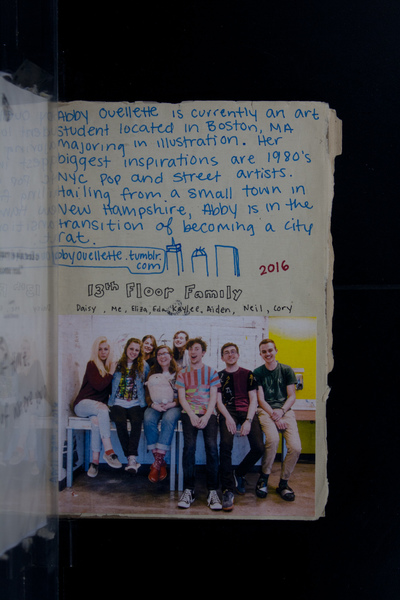 Abby Ouellette is currently an art
student located in Boston, MA
majoring in illustration. Her
biggest inspirations are 1980's
NYC pop and street artists.
Hailing from a small town in
New Hampshire, Abby is in the
transition of becoming a city
rat.
abbyouellette.tumblr.
com
2016
13th Floor Family
Daisy, Me, Eliza, Eda, Kaylee, Aiden, Neil, Cory